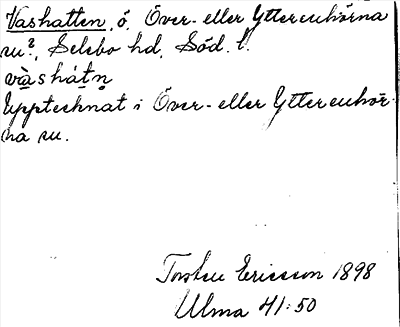 Vashatten, ö, Över- eller Ytterenhörna
sn?, Selebo hd, Söd. l.
va̱shátn̥
Upptecknat i Över- eller Ytterenhör-
na sn.
Torsten Ericsson 1898
Ulma 41:50